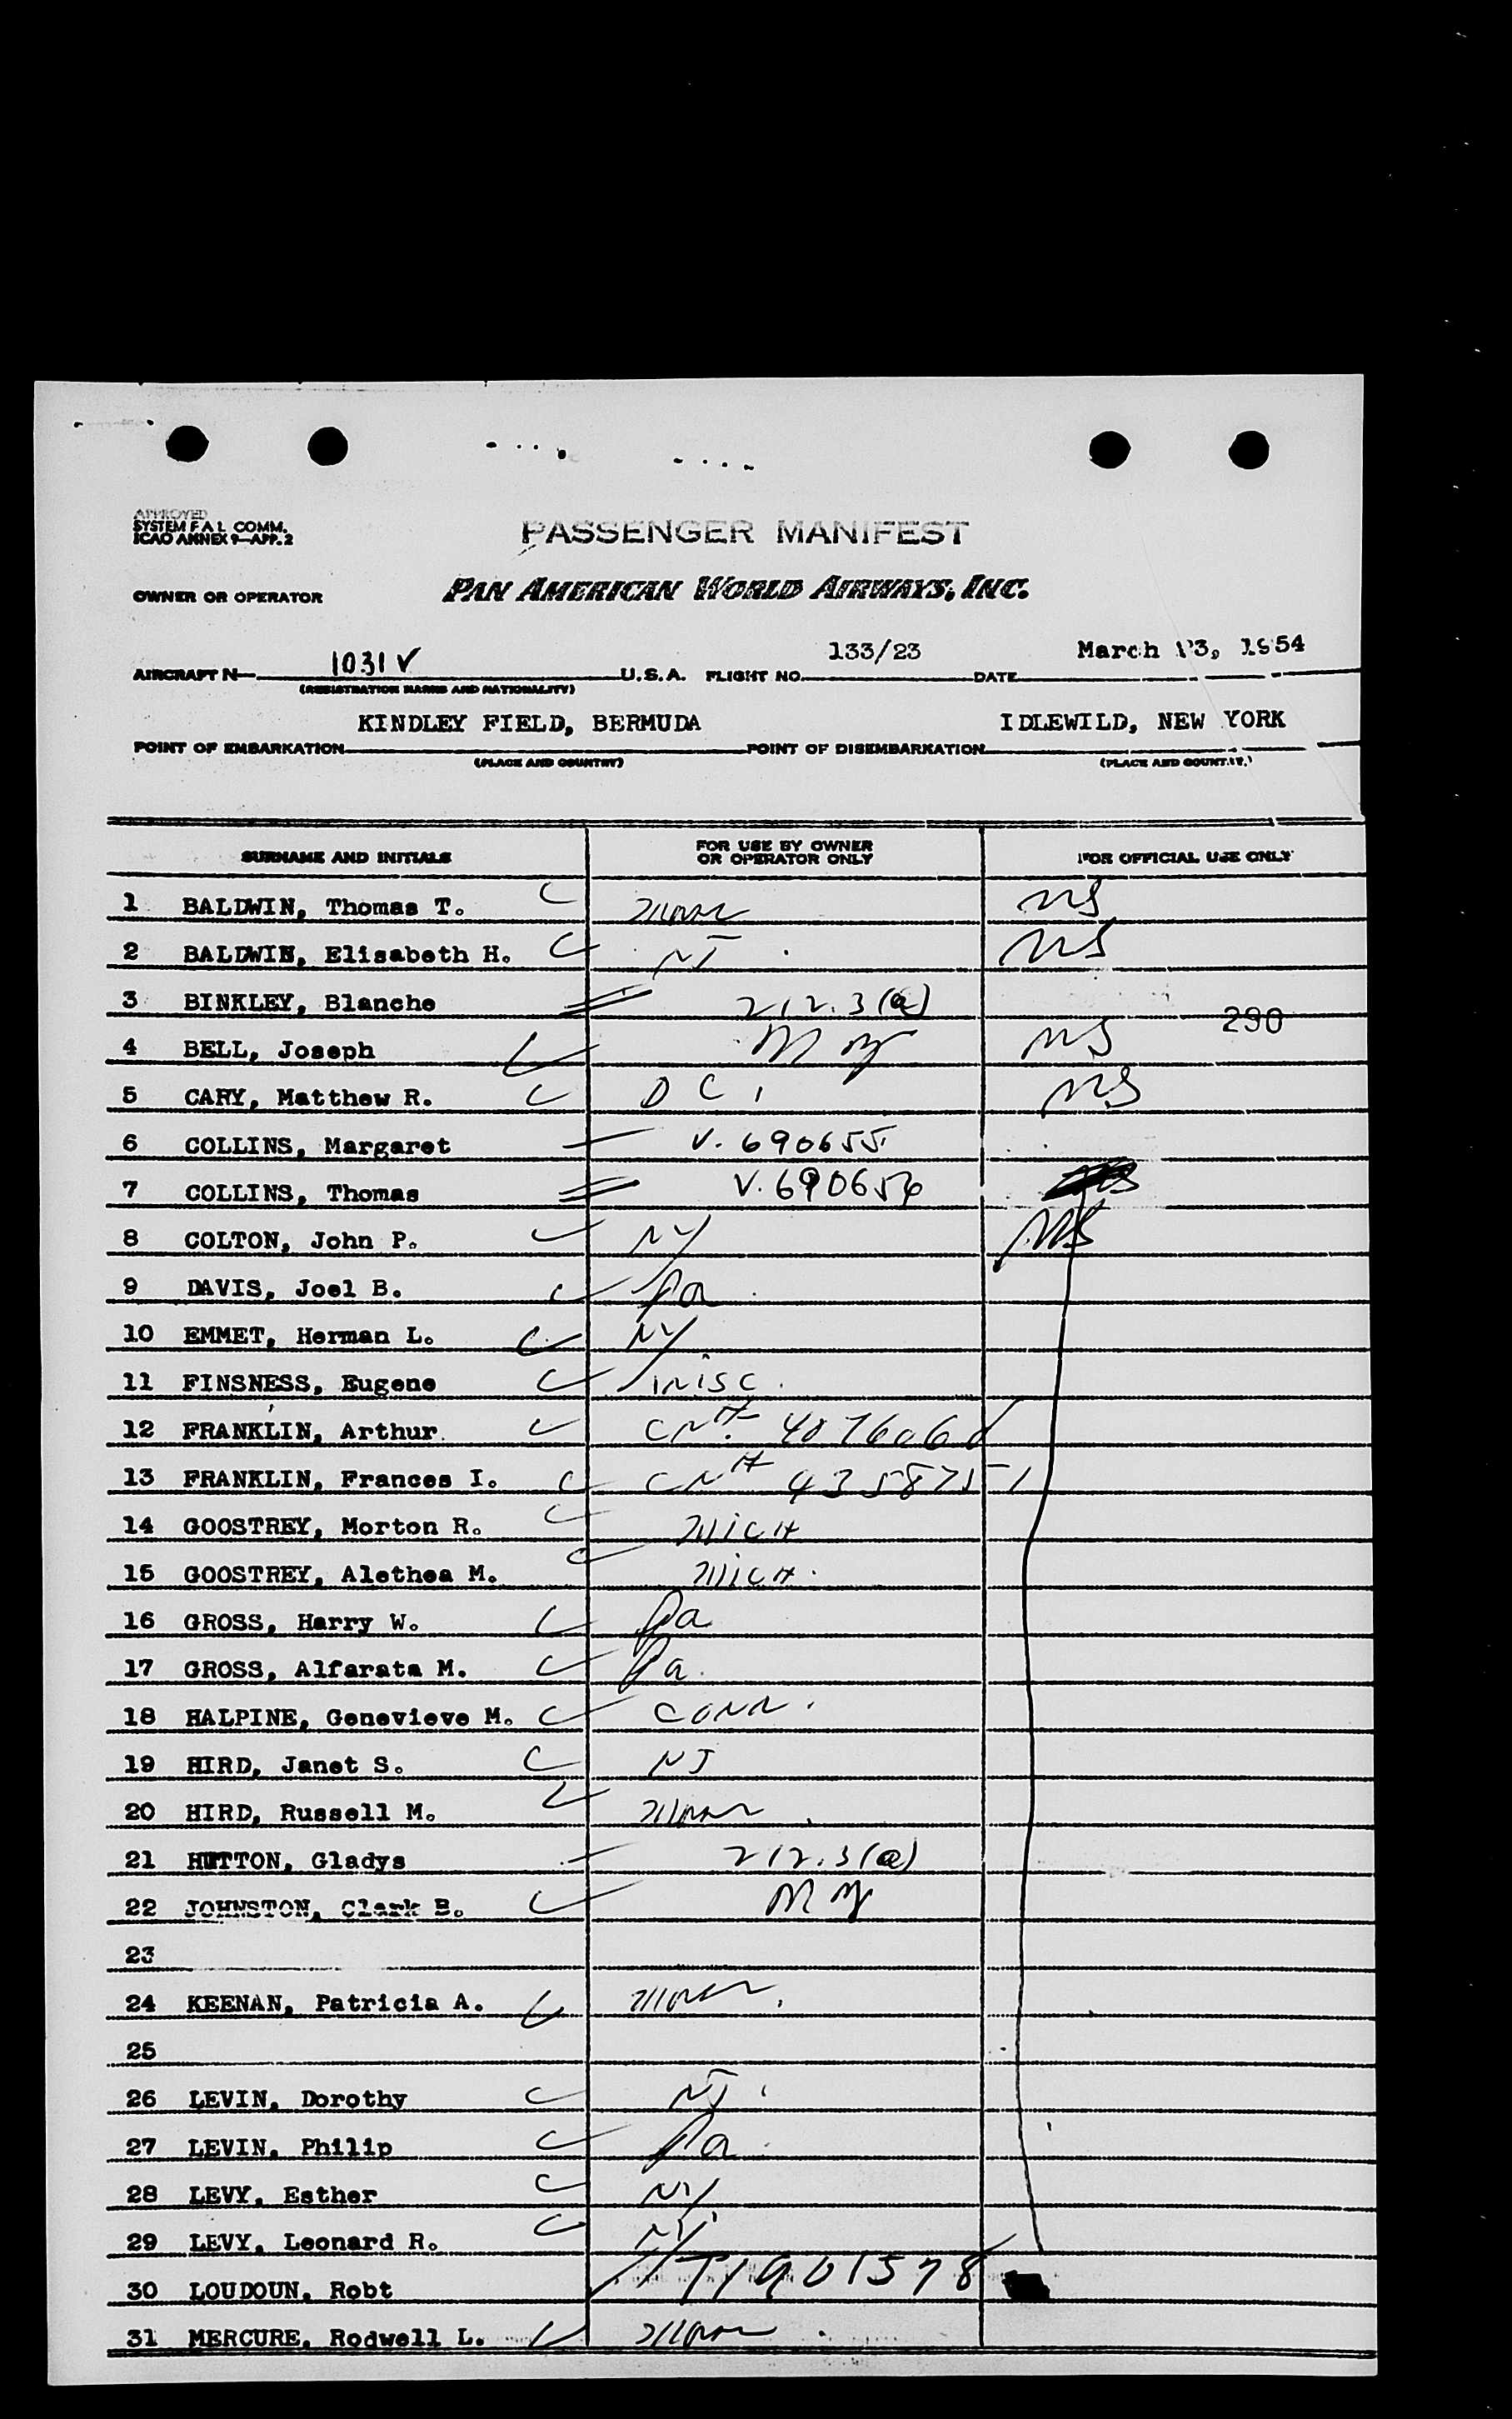 APPROVED
SYSTEM F A L COMM.
ICAO ANNEX 9—APP. 2
PASSENGER MANIFEST
OWNER OR OPERATOR PAN AMERICAN WORLD AIRWAYS, INC.
AIRCRAFT N 1031 V U.S.A. FLIGHT NO. 133/23 DATE March 13, 1954
(REGISTRATION MARKS AND NATIONALITY)
POINT OF EMBARKATION KINDLEY FIELD, BERMUDA POINT OF DISEMBARKATION IDLEWILD, NEW YORK
(PLACE AND COUNTRY) (PLACE AND COUNTRY)
SURNAME AND INITIALS FOR USE BY OWNER OR OPERATOR ONLY FOR OFFICIAL USE ONLY
1 BALDWIN, Thomas T. C NS
2 BALDWIN, Elisabeth H. C NJ NS
3 BINKLEY, Blanche 212.3(a)
290
4 BELL, Joseph C NS
5 CARY, Matthew R. C D C NS
6 COLLINS, Margaret V. 690655
7 COLLINS, Thomas V. 690656
8 COLTON, John P. C NY NS
9 DAVIS, Joel B. C Pa
10 EMMET, Herman L. C NY
11 FINSNESS, Eugene C WISC.
12 FRANKLIN, Arthur C CN#
13 FRANKLIN, Frances I. C CN#
14 GOOSTREY, Morton R. C MICH
15 GOOSTREY, Alethea M. C MICH.
16 GROSS, Harry W. C Pa
17 GROSS, Alfarata M. C Pa.
18 HALPINE, Genevieve M. C CONN.
19 HIRD, Janet S. C NJ
20 HIRD, Russell M. C
21 HUTTON, Gladys 212.3(a)
22 JOHNSTON, Clark B. C
23
24 KEENAN, Patricia A. C
25
26 LEVIN, Dorothy C NJ.
27 LEVIN, Philip C Pa.
28 LEVY, Esther C NY
29 LEVY, Leonard R. C NY
30 LOUDOUN, Robt T1901578
31 MERCURE, Rodwell L. C